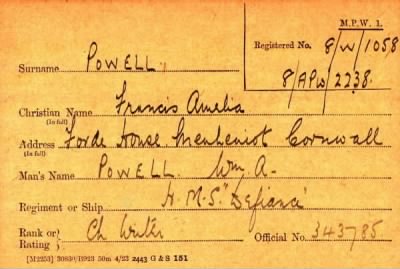 M.P.W. 1.
Registered No. 8/W/1058
8/APW/2238.
Surname POWELL
Christian Name (In full) Francis Amelia
Address (In full) Forde House Menheniot Cornwall
Man's Name POWELL. Wm. A.
Regiment or Ship H.M.S. "Defiance"
Rank or Rating Ch Writer Official No. 343785
[M2253] 30839/B923 50m 4/23 2443 G & S 151